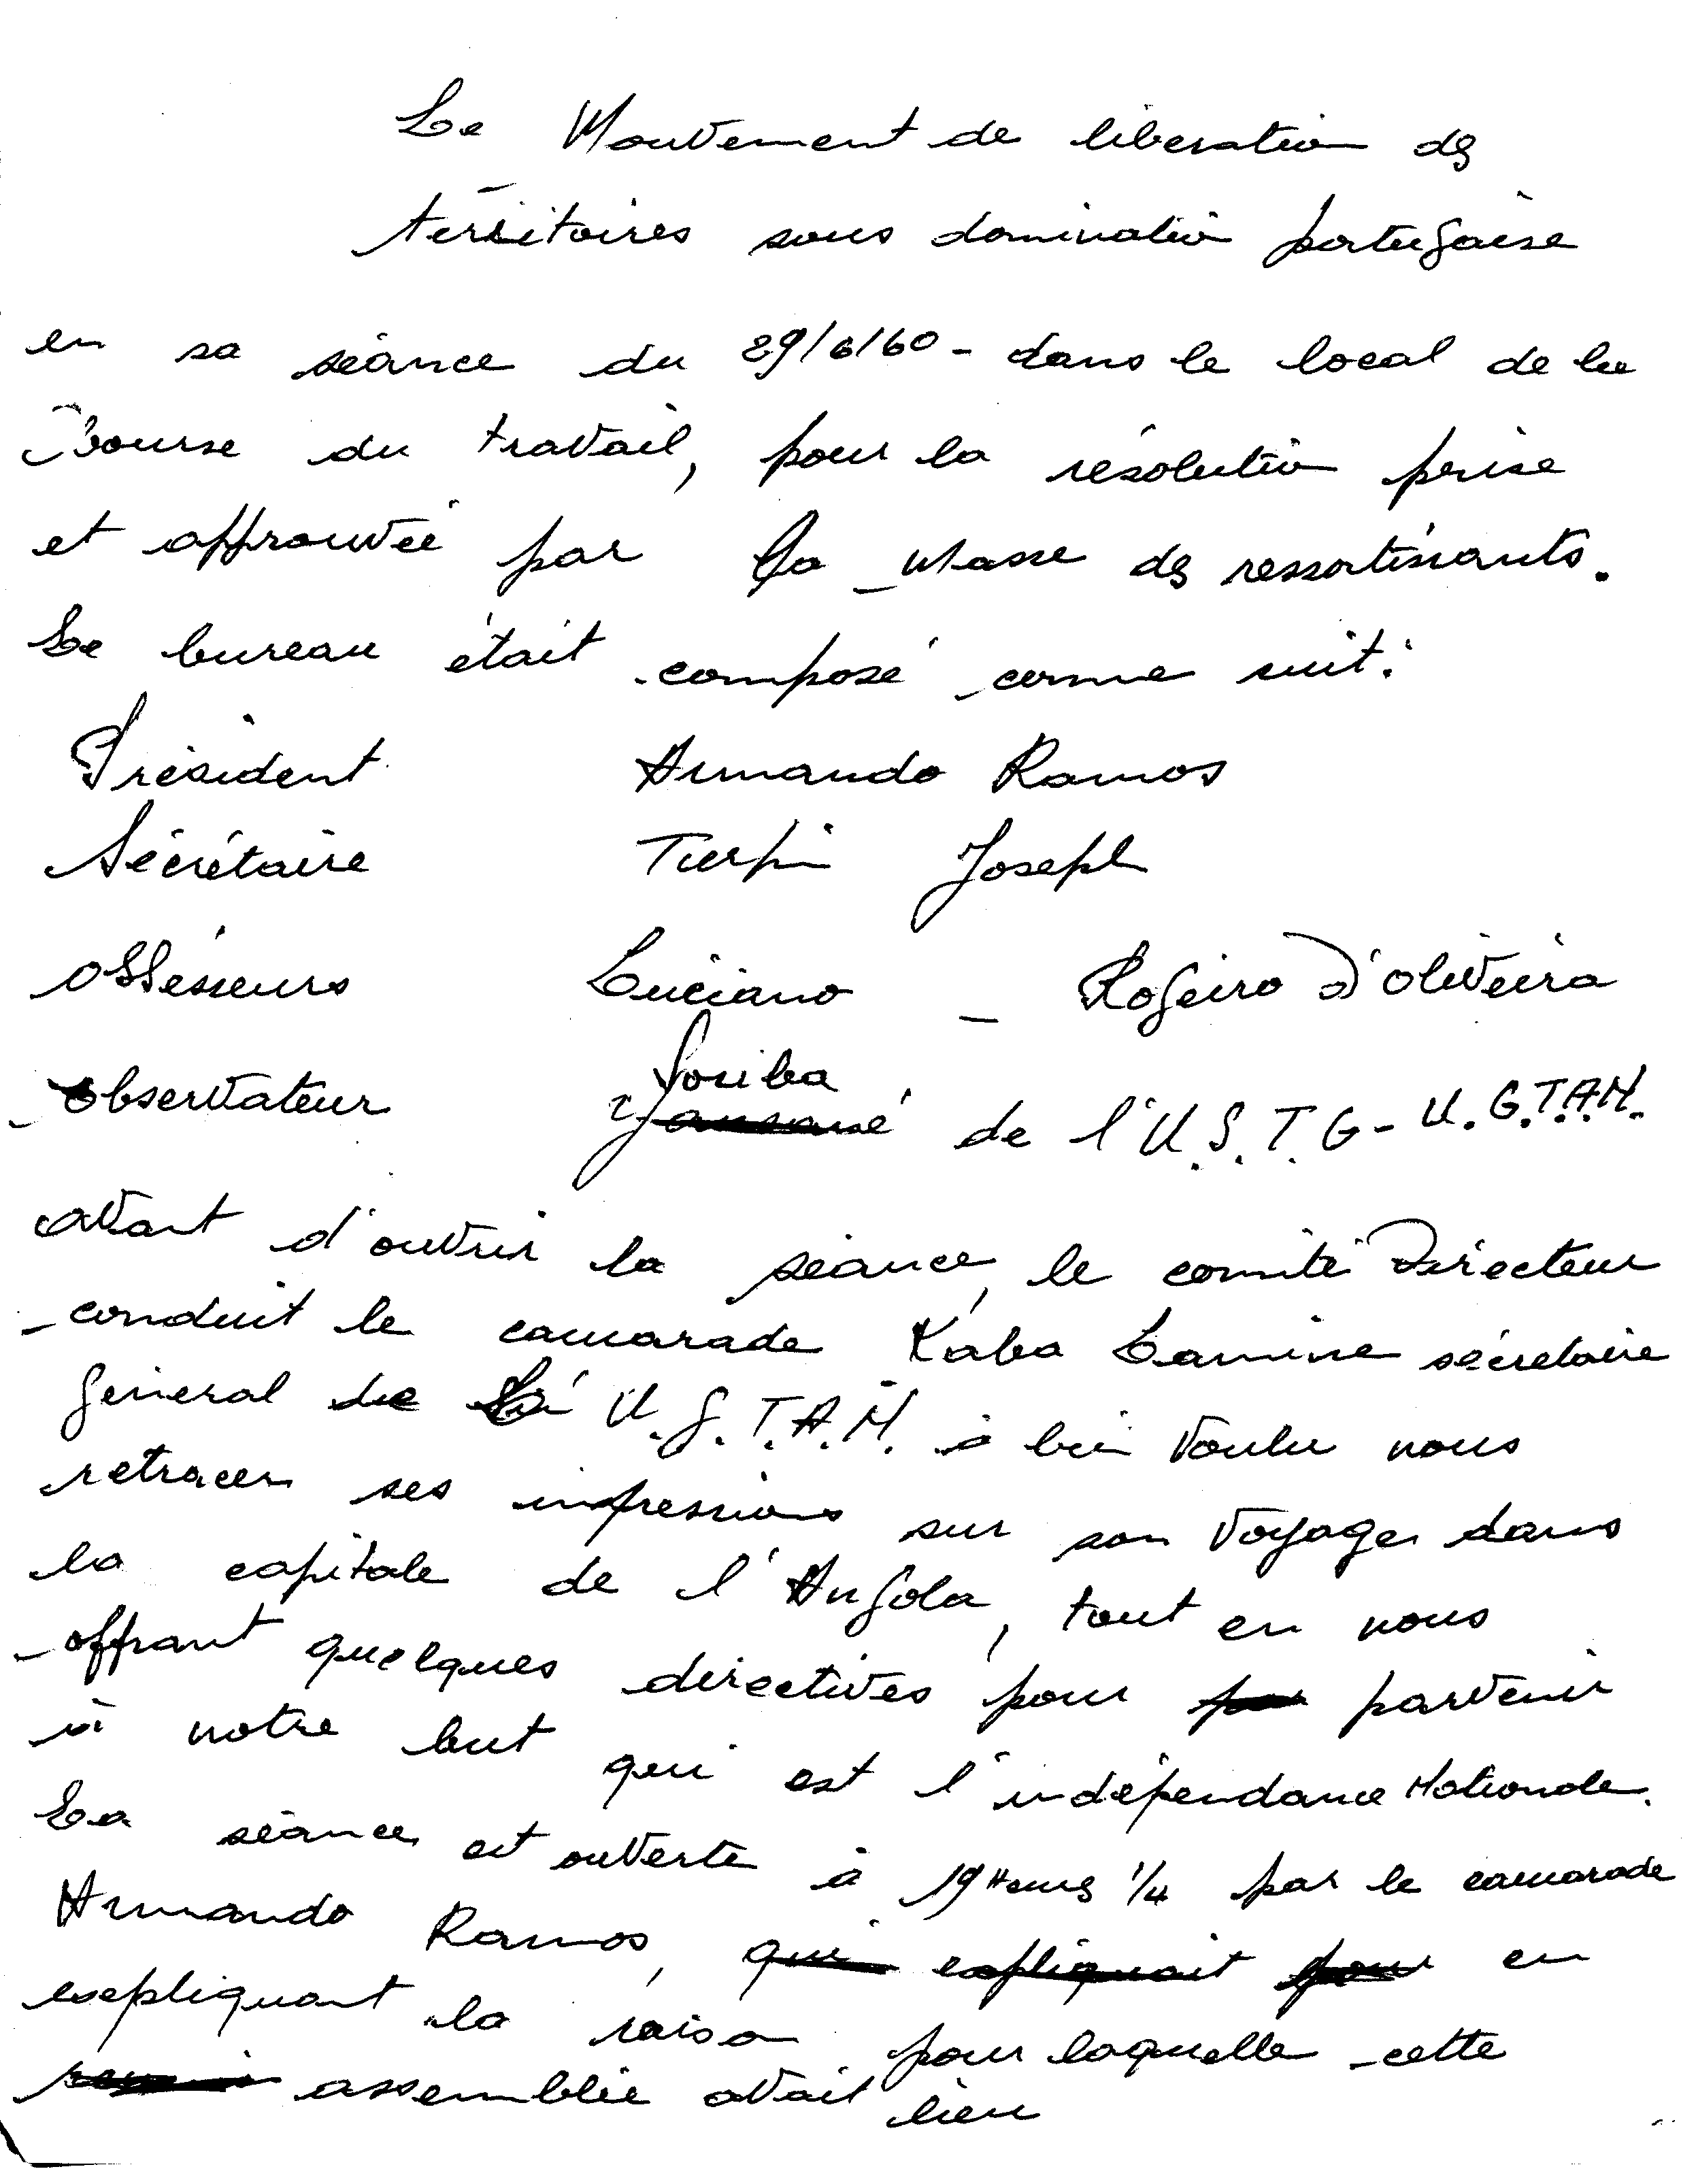 Le Mouvement de libération des
térritoires sous domination portugaise
en sa séance du 29/6/60 - dans le local de la
Bourse du travail, pour la résolution prise
et approuvée par la Masse des ressortissants.
Le bureau était composé comme suit:
Président Armando Ramos
Sécrétaire Turpin Joseph
assésseurs Luciano _ Rogeiro d'oliveira
Soriba
observateur de l'U.S.T.G - U.G.T.A.N.
avant d'ouvrir la séance, le comité Directeur
conduit le camarade Kaba Lamine sécretaire
général de L'U.G.T.A.N. à bien voulu nous
retracer ses impressions sur son voyage dans
la capitale de l'Angola, tout en nous
offrant quelques directives pour parvenir
à notre but qui est l'indépendance Nationale.
La séance est ouverte à 19 Heures 1/4 par le camarade
Armando Ramos, qui expliquait pour en
expliquant la raison pour laquelle cette
assemblée avait lieu